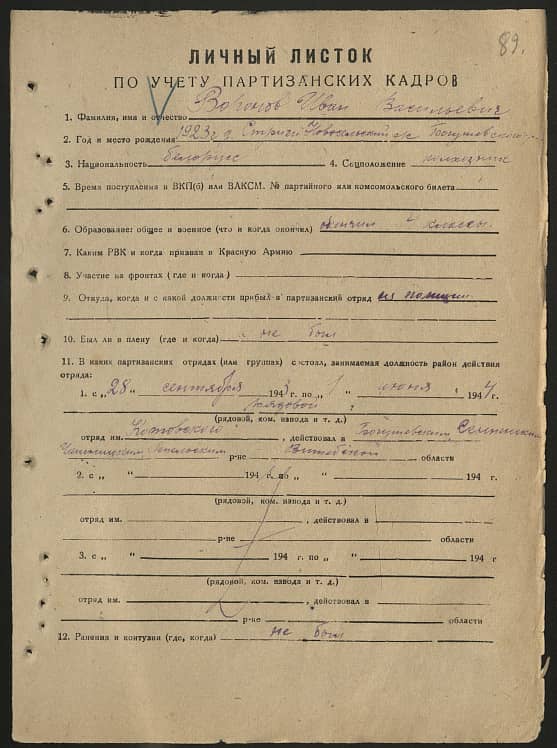 89.
ЛИЧНЫЙ ЛИСТОК
ПО УЧЕТУ ПАРТИЗАНСКИХ КАДРОВ
1. Фамилия, имя и отчество Воронов Иван Васильевич
2. Год и место рождения 1923 г д. Стриги Новосельский с/с Богушевского
3. Национальность белорус 4. Соцположение колхозник
5. Время поступления в ВКП(б) или ВЛКСМ. № партийного или комсомольского билета
6. Образование: общее и военное (что и когда окончил) окончил 4 классы.
7. Каким РВК и когда призван в Красную Армию
8. Участие на фронтах (где и когда)
9. Откуда, когда и с какой должности прибыл в партизанский отряд из полиции
10. Был ли в плену (где и когда) не был
11. В каких партизанских отрядах (или группах) состоял, занимаемая должность район действия
отряда:
1. с „28 сентября 1943 г. по „1 июня 1944 г.
рядовой
(рядовой, ком. взвода и т. д.)
отряд им. Котовского, действовал в Богушевским Сенненским
Чашникским Лепельским р-не Витебской области
2. с „ “ 194 г. по „ “ 194 г.
(рядовой, ком. взвода и т. д.)
отряд им. , действовал в
р-не области
3. с „ “ 194 г. по „ “ 194 г
(рядовой, ком. взвода и т. д.)
отряд им. , действовал в
р-не области
12. Ранения и контузии (где, когда) не был